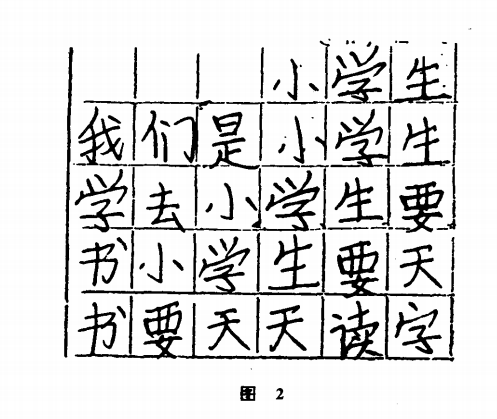 小学生
我们是小学生
学去小学生要
书小学生要天
书要天天读字
图 2